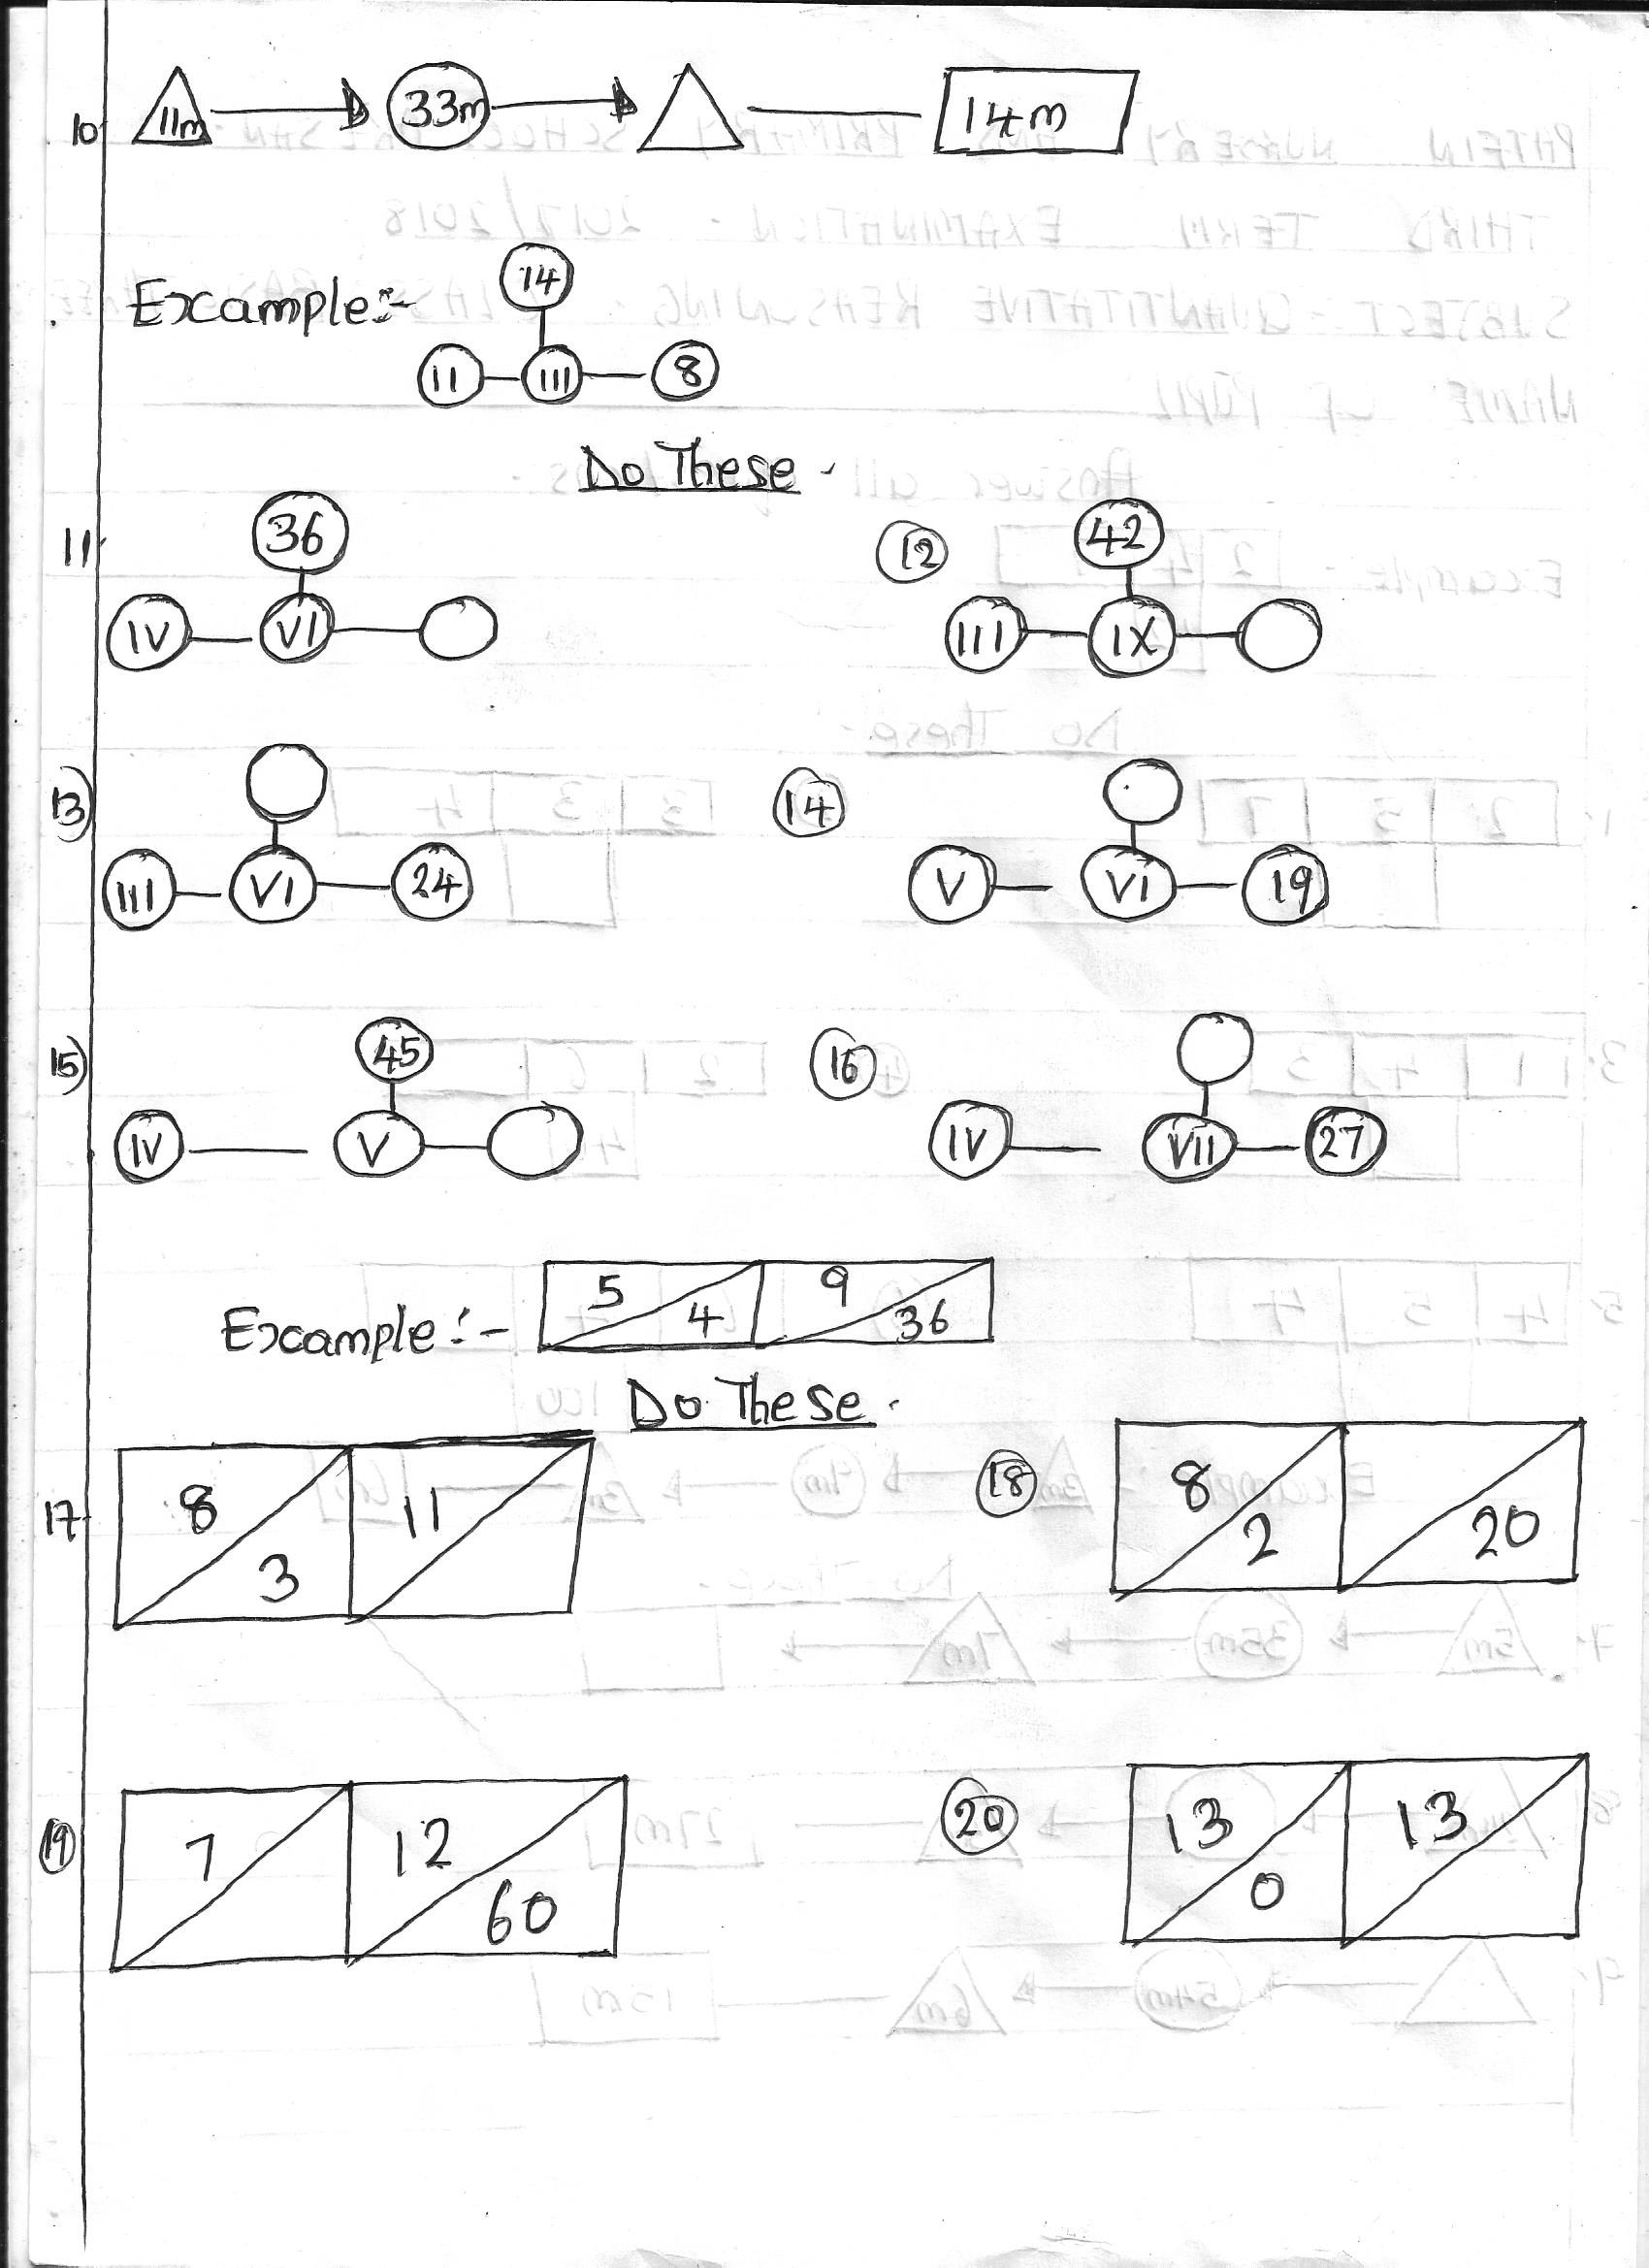 10 11m 33m 14m
Example:- 14
II III 8
Do These.
11 36
IV VI
12 42
III IX
13)
III VI 24
14
V VI 19
15) 45
IV V
16
IV VII 27
Example:- 5 4 9 36
Do These.
17. 8 3 11
18 8 2 20
19 7 12 60
20 13 0 13